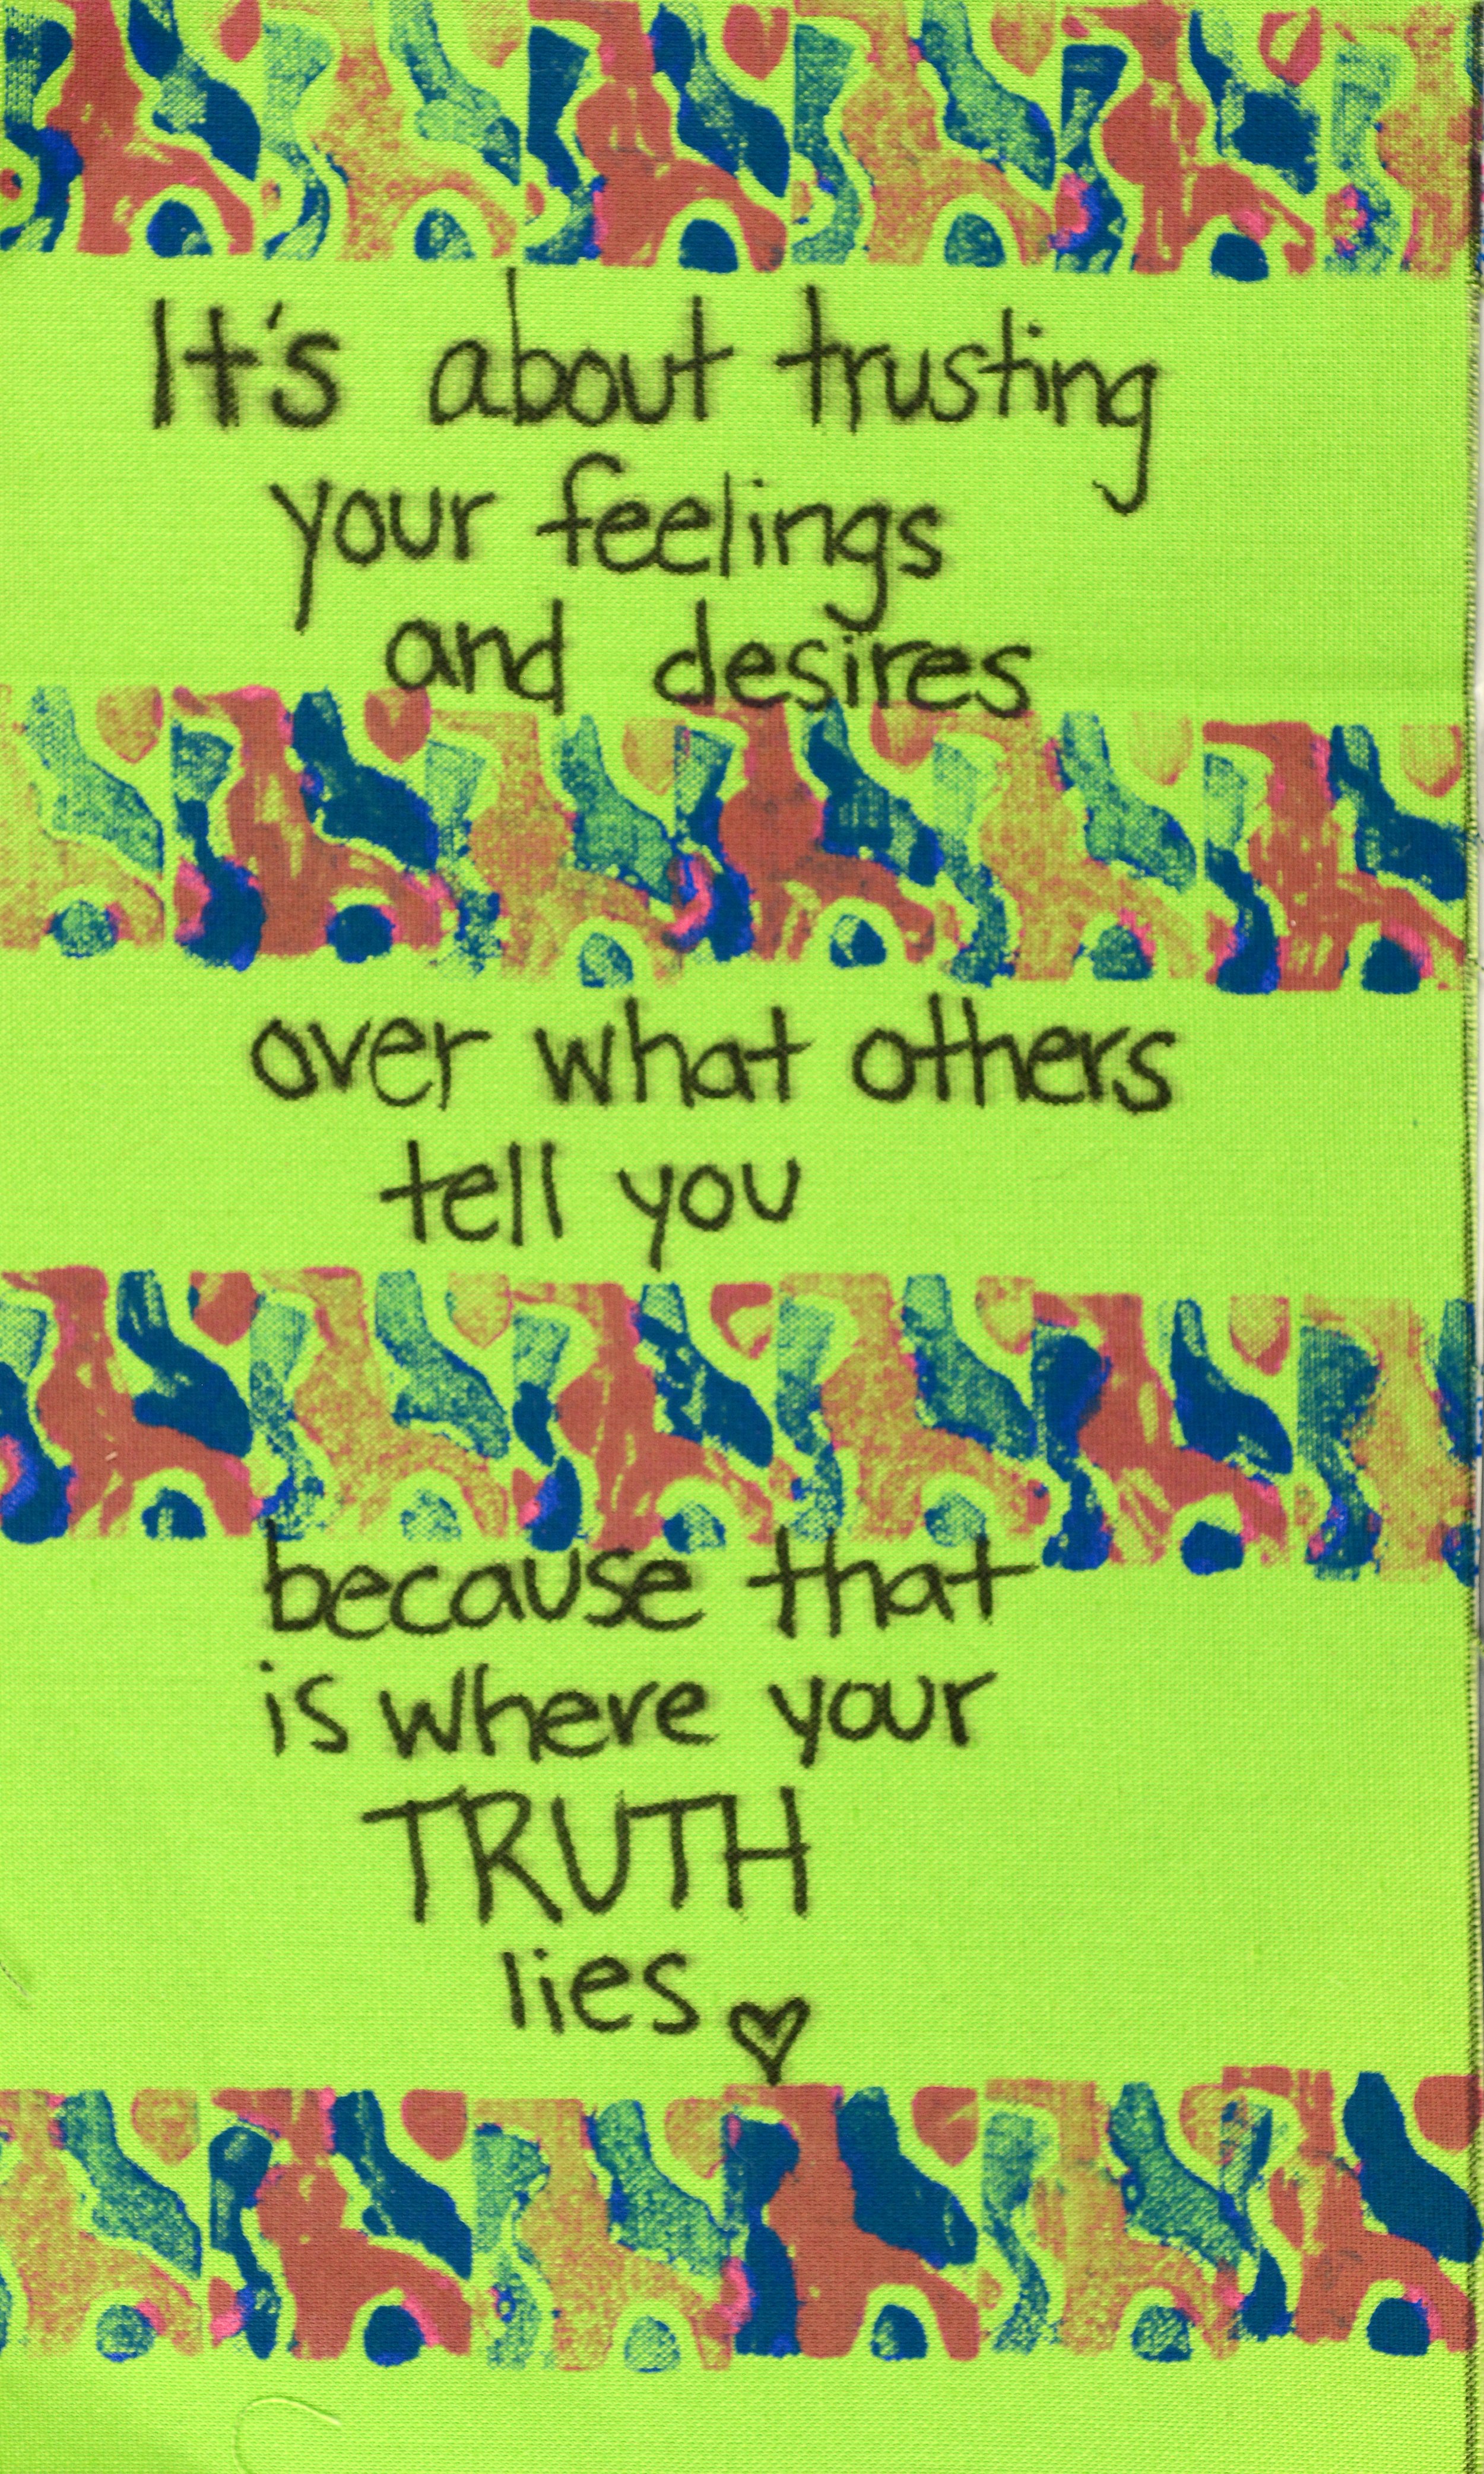 It's about trusting
your feelings
and desires
over what others
tell you
because that
is where your
TRUTH
lies